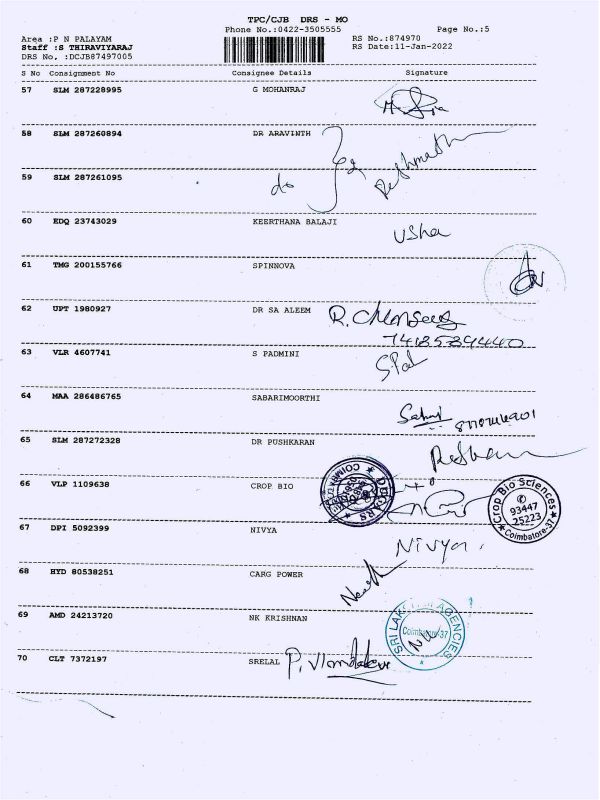 TPC/CJB DRS - MO
Phone No.:0422-3505555 Page No.:5
Area :P N PALAYAM RS No.:874970
Staff :S THIRAVIYARAJ RS Date:11-Jan-2022
DRS No. :DCJB87497005
S No Consignment No Consignee Details Signature
57 SLM 287228995 G MOHANRAJ
58 SLM 287260894 DR ARAVINTH
59 SLM 287261095 do
60 EDQ 23743029 KEERTHANA BALAJI
Usha
61 TMG 200155766 SPINNOVA
62 UPT 1980927 DR SA ALEEM R.
63 VLR 4607741 S PADMINI
S.Pad
64 MAA 286486765 SABARIMOORTHI
65 SLM 287272328 DR PUSHKARAN
66 VLP 1109638 CROP BIO
Crop Bio Sciences
93447
25223
Coimbatore-37
67 DPI 5092399 NIVYA
Nivya
68 HYD 80538251 CARG POWER
69 AMD 24213720 NK KRISHNAN
SRI AGENCIES
Coimbatore-37
70 CLT 7372197 SRELAL P.